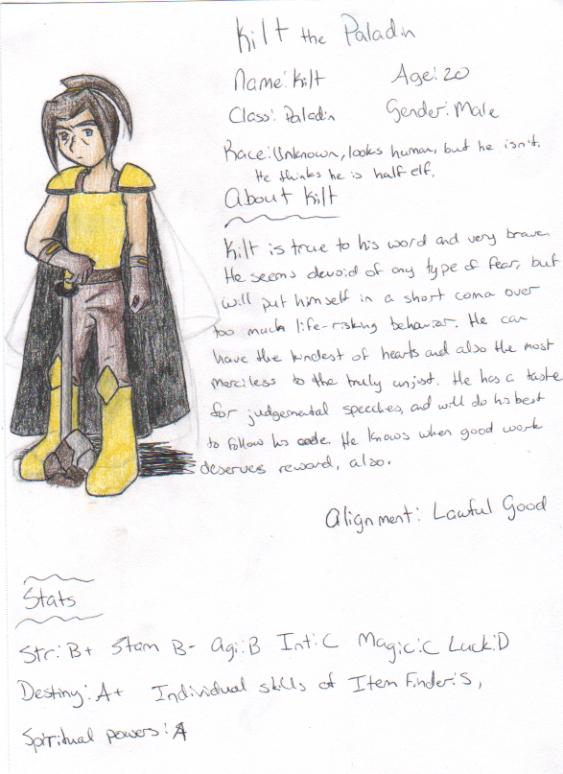 Kilt the Paladin
Name: Kilt Age: 20
Class: Paladin Gender: Male
Race: Unknown, looks human, but he isn't.
He thinks he is half elf.
About Kilt
Kilt is true to his word and very brave.
He seems devoid of any type of fear, but
will put himself in a short coma over
too much life-risking behavior. He can
have the kindest of hearts and also the most
merciless to the truly unjust. He has a taste
for judgemental speeches, and will do his best
to follow his code. He knows when good work
deserves reward, also.
Alignment: Lawful Good
Stats
Str: B+ Stam B- Agi: B Int: C Magic: C Luck: D
Destiny: A+ Individual skills of Item Finder: S,
Spiritual powers: A